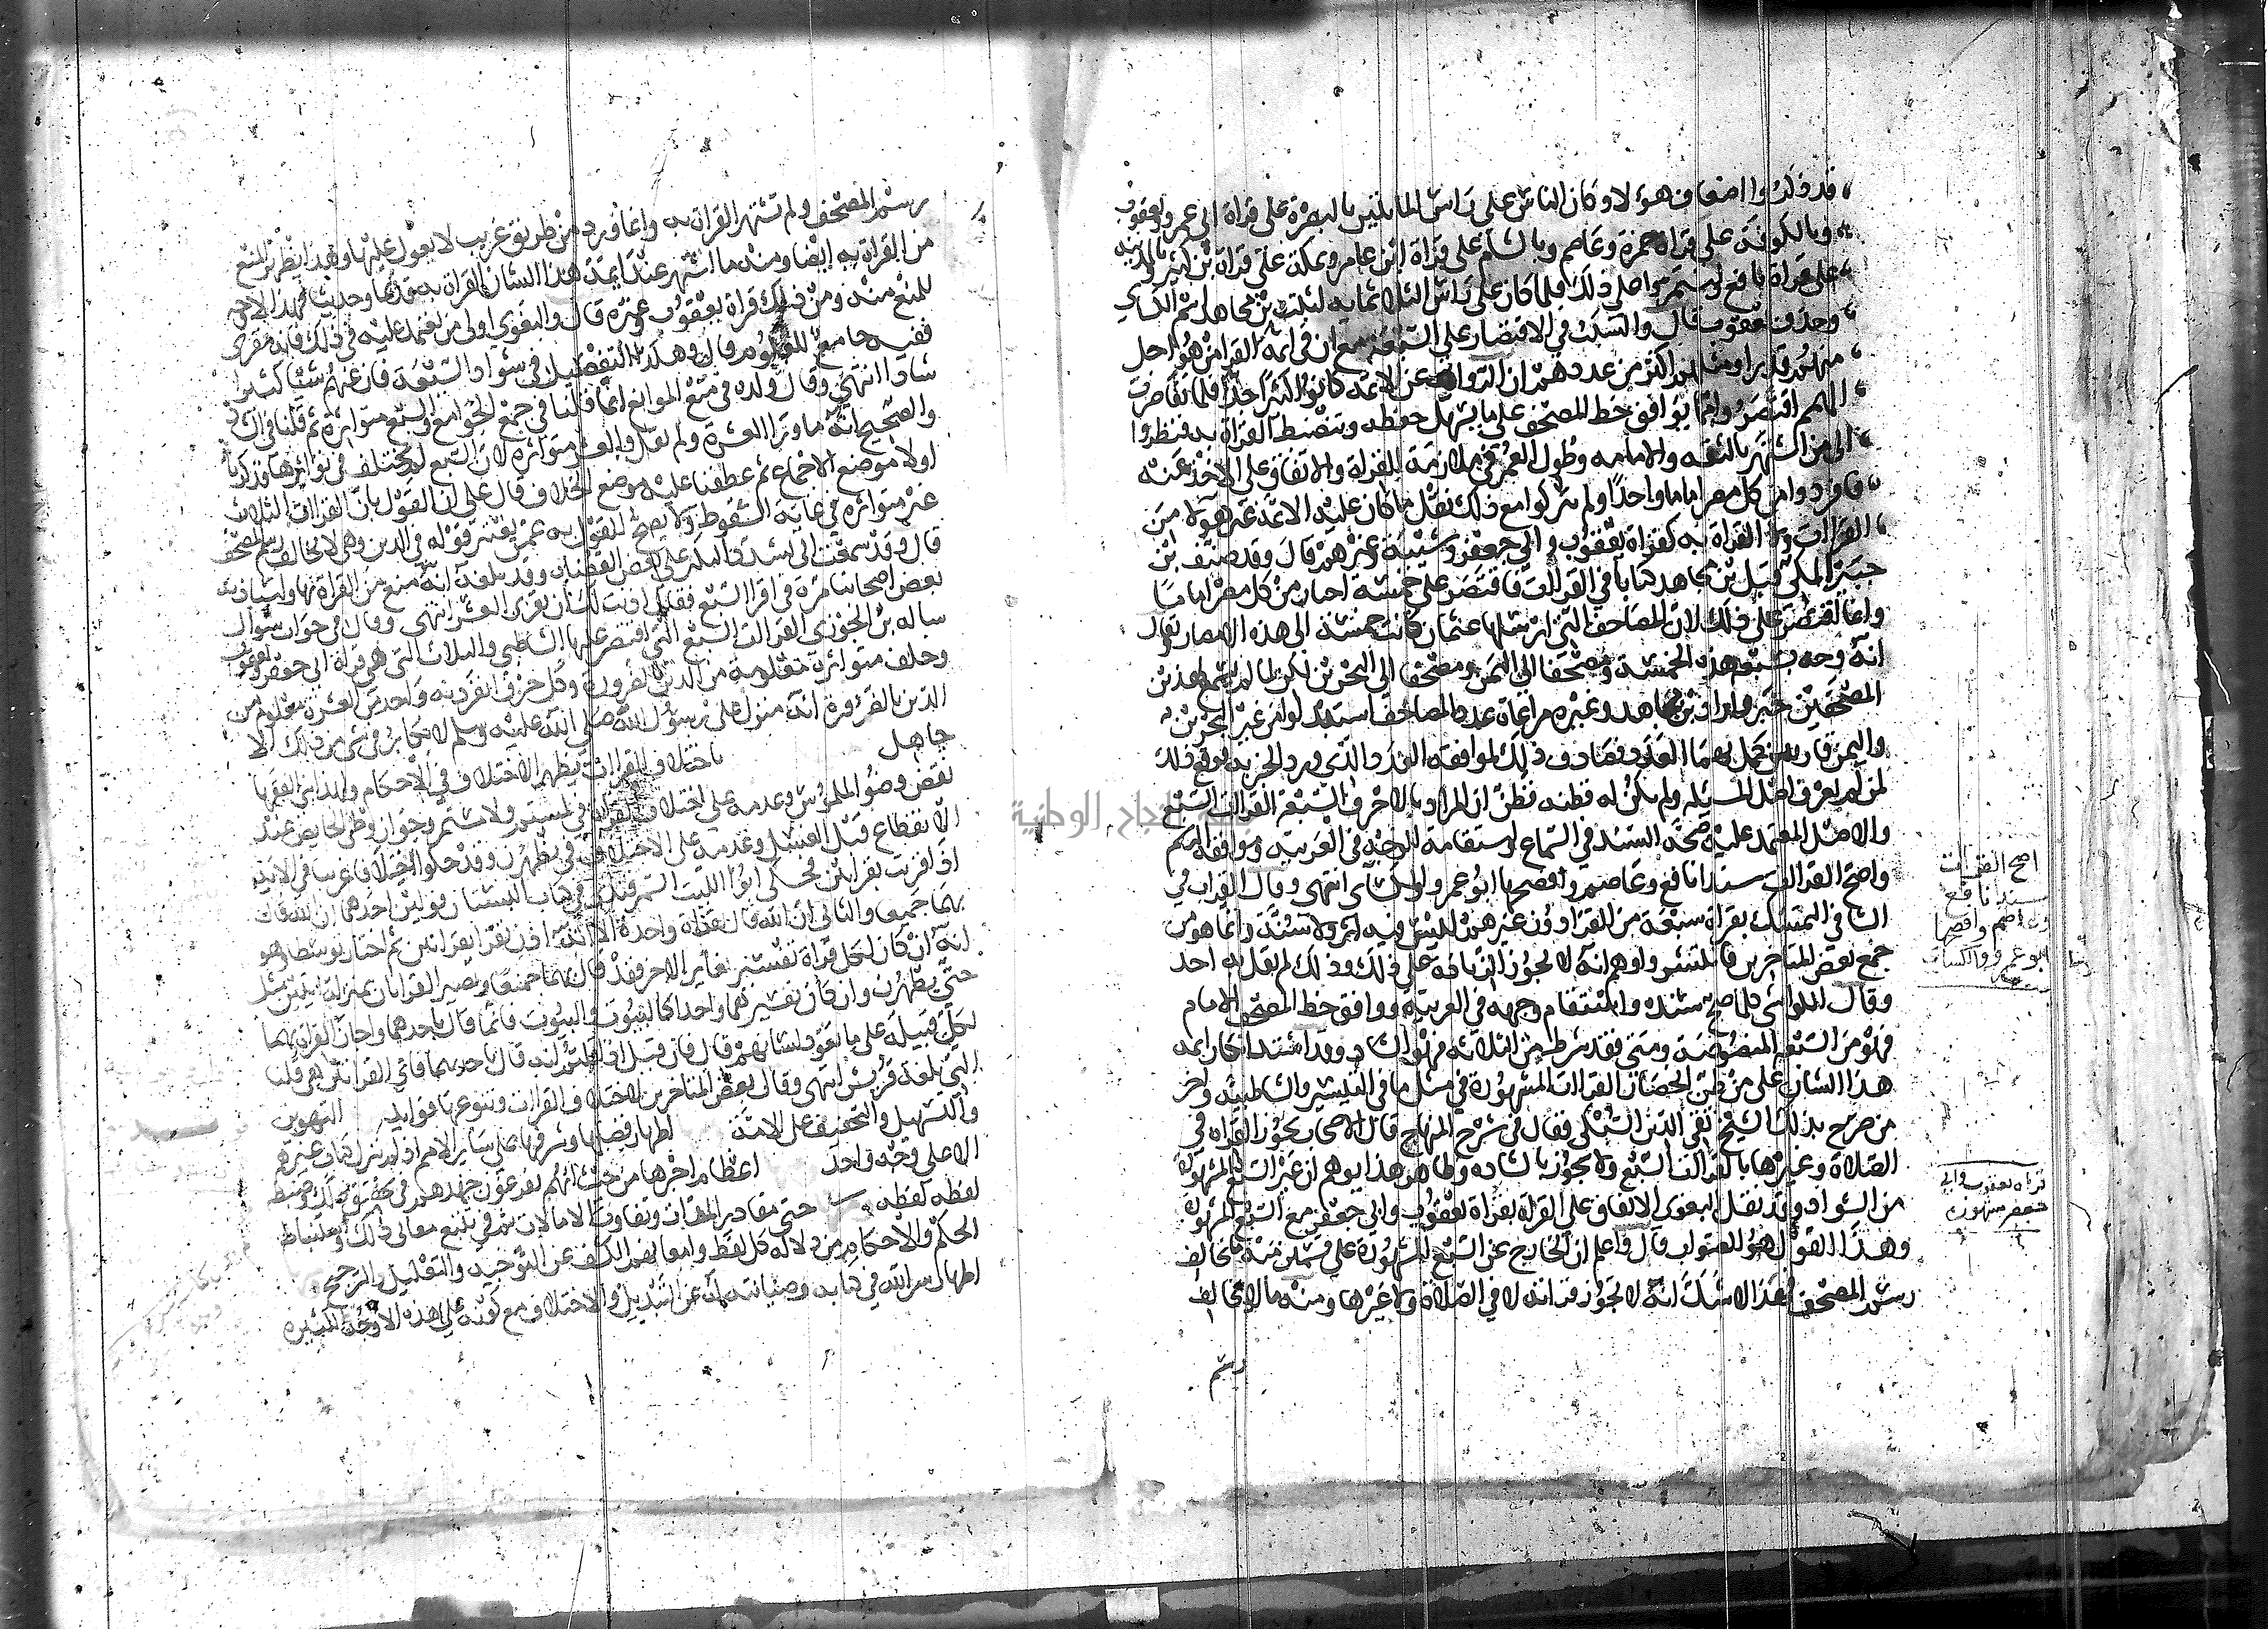 قد ذلك وا اضعاف هؤلاء وكان الناس على راس المايتين بالبصرة على قراة ابي عمرو ويعقوب
وبالكوفة على قراة حمزة وعاصم وبالشام على قراة ابن عامر وبمكة على قراة بن كثير وبالمدينة
على قراة نافع واستمروا على ذلك فلما كان على راس الثلاثمايه اثبت بن مجاهد اسم الكساي
وحذف يعقوب قال والسبب في الاقتصار على السبعة مع ان في ايمة القرا من هو اجل
منهم قدرا ومثلهم اكثر من عددهم ان الرواة عن الايمة كانوا كثيرا جدا فلما تقاصرت
الهمم اقتصروا مما يوافق خط المصحف على ما يسهل حفظه وتنضبط القراة به فنظروا
الى من اشتهر بالثقه والامانه وطول العمر في ملازمة القراة والاتفاق على الاخذ عنه
فافردوا من كل مصر اماما واحدا ولم يتركوا مع ذلك نقل ما كان عليه الايمة غير هولا من
القراات ولا القراة به كقراة يعقوب وابي جعفر وشيبة وغيرهم قال وقد صنف ابن
جبير المكي قبل بن مجاهد كتابا في القراات فاقتصر على خمسة اختار من كل مصر اماما
وانما اقتصر على ذلك لان المصاحف التي ارسلها عثمان كانت خمسة الى هذه الامصار ويقال
انه وجه بسبعة هذه الخمسة ومصحفا الى اليمن ومصحفا الى البحرين لكن لما لم يسمع لهذين
المصحفين خبر واراد بن مجاهد وغيره مراعاة عدد المصاحف استبدلوا من غير البحرين
واليمن قاريين كمل بهما العدد فصادف ذلك موافقة العدد الذي ورد الخبر به فوقع ذلك
لمن لم يعرف اصل المسيله ولم يكن له فطنه فظن ان المراد بالاحرف السبعة القراات السبع
والاصل المعتمد عليه صحة السند في السماع واستقامة الوجه في العربية وموافقة الرسم
واصح القراات سندا نافع وعاصم وافصحها ابو عمرو والكساي انتهى وقال القراب في
الشافي التمسك بقراة سبعة من القرا دون غيرهم ليس فيه اثر ولا سنة وانما هو من
جمع بعض المتاخرين فانتشر واوهم انه لا تجوز الزيادة على ذلك وذلك لم يقل به احد
وقال الكواشي كلما صح سنده واستقام وجهه في العربية ووافق خط المصحف الامام
فهو من السبعه المنصوصة ومتى فقد شرط من الثلاثه فهو الشاذ وقد اشتد انكار ايمه
هذا الشان على من ظن انحصار القراات المشهورة في مثل ما في التيسير والشاطبية واخر
من صرح بذلك الشيخ تقي الدين السبكي فقال في شرح المنهاج قال الاصحاب تجوز القراه في
الصلاة وغيرها بالقراات السبع ولا تجوز بالشاذه وظاهر هذا يوهم ان غير السبع المشهورة
من الشواذ وقد نقل البغوي الاتفاق على القراة بقراة يعقوب وابي جعفر مع السبع المشهورة
وهذا القول هو الصواب قال واعلم ان الخارج عن السبع المشهورة على قسمين منه ما يخالف
رسم المصحف فهذا لا شك انه لا تجوز قراته لا في الصلاة ولا غيرها ومنه ما لا يخالف
رسم
اصح القرات
سندا نافع
وعاصم وافصحها
ابو عمرو والكساي
قراه يعقوب وابي
جعفر مشهورة
رسم المصحف ولم تشتهر القراة به وانما ورد من طريق غريب لا يعول عليها وهذا يظهر المنع
من القراة به ايضا ومنه ما اشتهر عند ايمة هذا الشان القراة به قديما وحديثا فهذا لا وجه
للمنع منه ومن ذلك قراة يعقوب وغيره قال والبغوي اولى من يعتمد عليه في ذلك فانه مقرى
فقيه جامع للعلوم قال وهكذا التفصيل في شواذ السبعة فان عنهم شيئا كثيرا
شاذا انتهى وقال ولده في منع الموانع انما قلنا في جمع الجوامع والسبع متواترة ثم قلنا في الشاذ
والصحيح انه ما ورا العشرة ولم نقل والعشر متواترة لان السبع لم يختلف في تواترها فذكرنا
اولا موضع الاجماع ثم عطفنا عليه موضع الخلاف قال على ان القول بان القراات الثلاث
غير متواترة في غاية السقوط ولا يصح القول به عمن يعتبر قوله في الدين وهي لا تخالف رسم المصحف
قال وقد سمعت ابي يشدد النكير على بعض القضاة وقد بلغه انه منع من القراة بها واستاذنه
بعض اصحابنا مرة في اقرا السبع فقال اذنت لك ان تقرى العشر انتهى وقال في جواب سوال
ساله بن الجزري القراات السبع التي اقتصر عليها الشاطبي والثلاث التي هي قراة ابي جعفر ويعقوب
وخلف متواترة معلومة من الدين بالضرورة وكل حرف انفرد به واحد من العشرة معلوم من
الدين بالضرورة انه منزل على رسول الله صلى الله عليه وسلم لا يكابر في شي من ذلك الا
جاهل باختلاف القراات يظهر الاختلاف في الاحكام ولهذا بنى الفقها
نقض وضو الملموس وعدمه على اختلاف القراة في لمستم ولامستم وجواز وطي الحايض عند
الانقطاع قبل الغسل وعدمه على الاختلاف في يطهرن وقد حكوا خلافا غريبا في الاية
اذا قريت بقراتين فحكى ابو الليث السمرقندي في كتاب البستان قولين احدهما ان الله قال
بهما جميعا والثاني ان الله قال بقراة واحدة الا انه اذن بقرا بقراتين ثم اختار توسطا وهو
انه ان كان لكل قراة تفسير يغاير الاخر فقد قال بهما جميعا وتصير القراتان بمنزلة ايتين مثل
حتى يطهرن وان كان تفسيرهما واحدا كالبيوت والبيوت فانما قال باحدهما واجاز القراة بهما
لكل قبيلة على ما تعود لسانهم قال فان قيل اذا قلتم انه قال باحديهما فاي القراتين هي قلنا
التي بلغة قريش انتهى وقال بعض المتاخرين لاختلاف القراات وتنوعها فوايد التهوين
والتسهيل والتخفيف على الامة اظهار فضلها وشرفها على ساير الامم اذ لم ينزل كتاب غيرهم
الا على وجه واحد اعظام اجرها من حيث انهم يفرغون جهدهم في تحقيق ذلك وضبط
لفظه لفظه حتى مقادير المدات وتفاوت الامالات ثم في تتبع معاني ذلك واستنباط
الحكم والاحكام من دلالة كل لفظ وامعانهم الكشف عن التوجيه والتعليل والترجيح
اظهار سر الله في كتابه وصيانته له عن التبديل والاختلاف مع كونه على هذه الاوجه الكثيرة
النجاح الوطنية